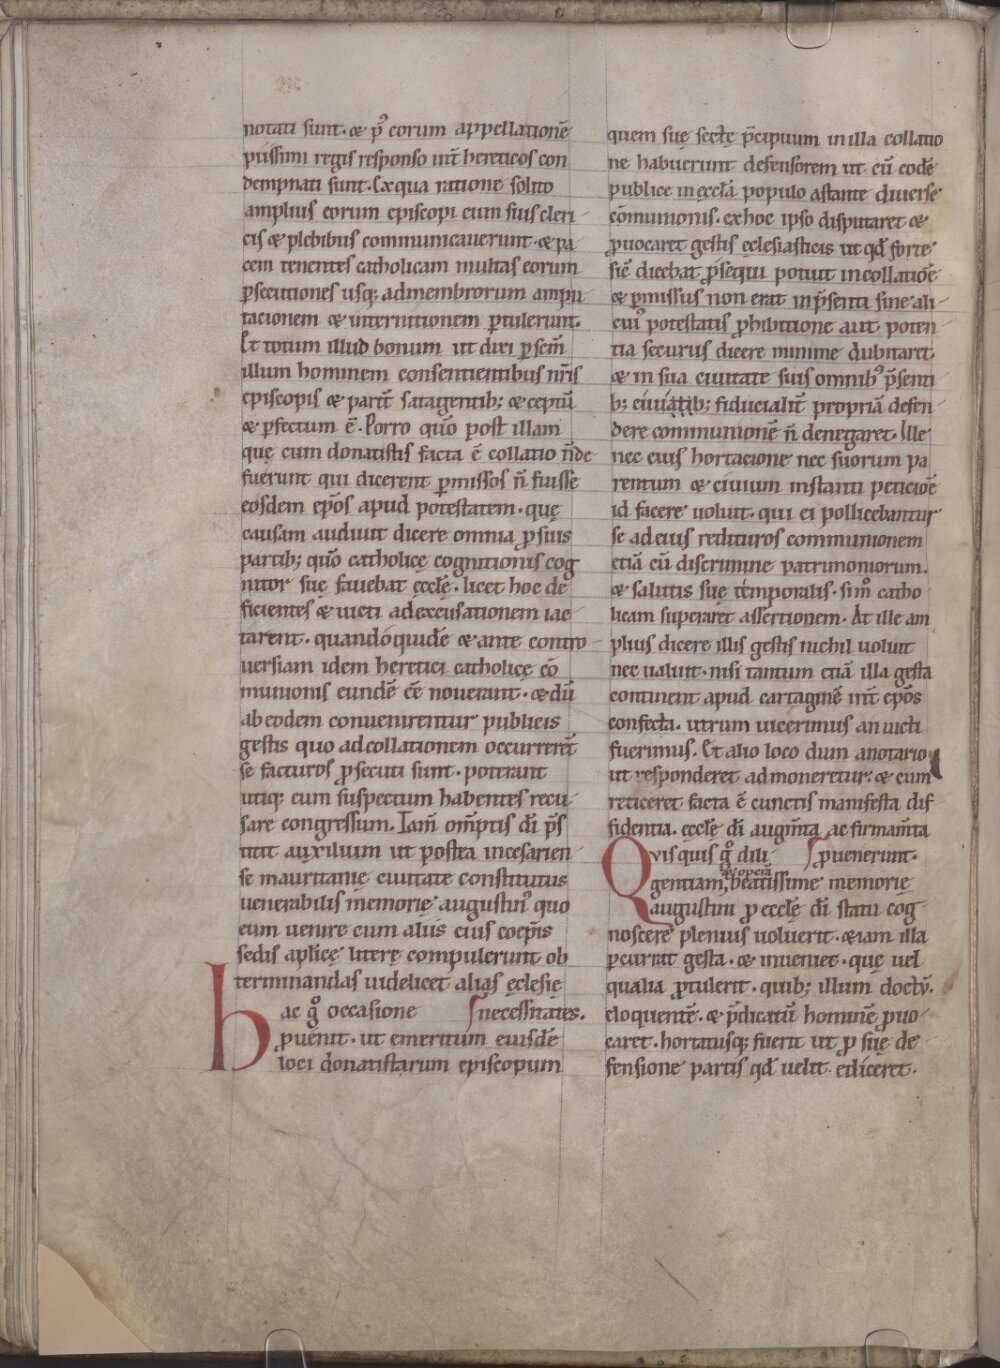 notati sunt. & p᷒ eorum appellationē
piissimi regis responso int̄ hereticos con
dempnati sunt. Ex qua ratione solito
amplius eorum episcopi cum suis cleri-
cis & plebibus communicauerunt. & pa
cem tenentes catholicam multas eorum
ꝑsecutiones usq; ad membrorum ampu-
tacionem & internitionem ꝑtulerunt.
Et totum illud bonum ut dixi ꝑ sc̄m
illum hominem consentientibus nr̄is
episcopis & parit̄ satagentib; & ceptū
& ꝑfectum ē. Porro quō post illam
quę cum donatistis facta ē collatio n̄ de
fuerunt qui dicerent ꝑmissos n̄ fuisse
eosdem ep̄os apud potestatem. quę
causam audiuit dicere omnia ꝓ suis
partib; quō catholicę cognitionis cog
nitor suę fauebat ęcclę̄. licet hoc de
ficientes & uicti ad excusationem iac
tarent. quandoquidē & ante contro-
uersiam idem heretici catholicę cō
munionis eundē eē nouerant. & dū
ab eodem conuenirentur publicis
gestis quo ad collationem occurrerēt
se facturos ꝓsecuti sunt. poterant
utiq; eum suspectum habentes recu-
sare congressum. Iam om̄ptis dī p̄s
titit auxilium ut postea in cesarien
se mauritanię ciuitate constitutus
uenerabilis memorię augustin᷒ quo
eum uenire cum aliis eius coep̄is
sedis apl̄icę litterę compulerunt ob
terminandas uidelicet alias ęclesię
necessitates.
hac g̊ occasione
ꝓuenit. ut emeritum eiusdē
loci donatistarum episcopum
quem suę sectę p̄cipuum in illa collatio
ne habuerunt defensorem ut cū eodē
publice in ęccl̄a populo astante diuersę
cōmunionis. ex hoc ipso disputaret &
ꝓuocaret gestis ęclesiasticis ut qd̄ forte
sic̄ dicebat ꝓsequi potuit in collatiōe
& ꝑmissus non erat in p̄senti sine ali-
cui᷒ potestatis ꝓhibitione aut poten-
tia securus dicere minime dubitaret.
& in sua ciuitate suis omnib᷒ p̄senti
b; ciuib; fiducialit̄ propriā defen
dere communionē n̄ denegaret. Ille
nec eius hortacione nec suorum pa
rentum & ciuium instanti peticiōe
id facere uoluit. qui ei pollicebantur
se ad eius redituros communionem
etiā cū discrimine patrimoniorum.
& salutis suę temporalis. si m̊ catho
licam superaret assertionem. At ille am
plius dicere illis gestis nichil uoluit
nec ualuit. nisi tantum etiā illa gesta
continent apud cartaginē int̄ ep̄os
confecta. utrum uicerimus an uicti
fuerimus. Et alio loco dum a notario
ut responderet admoneretur. & cum
reticeret facta ē cunctis manifesta dif
fidentia. ęcclę̄ dī augm̄ta ac firmam̄ta
ꝓuenerunt.
Qvisquis g̊ dili
gentiam, & operā beatissime memorię
augustini ꝓ ecclę̄ dī statu cog
noscere plenius uoluerit. & iam illa
ꝑcurrat gesta. & inueniet. quę uel
qualia ꝓtulerit. quib; illum doctū.
eloquentē. & p̄dicatū hominē ꝓuo-
caret. hortatusq; fuerit ut ꝓ suę de-
fensione partis qd̄ uelit. ediceret.